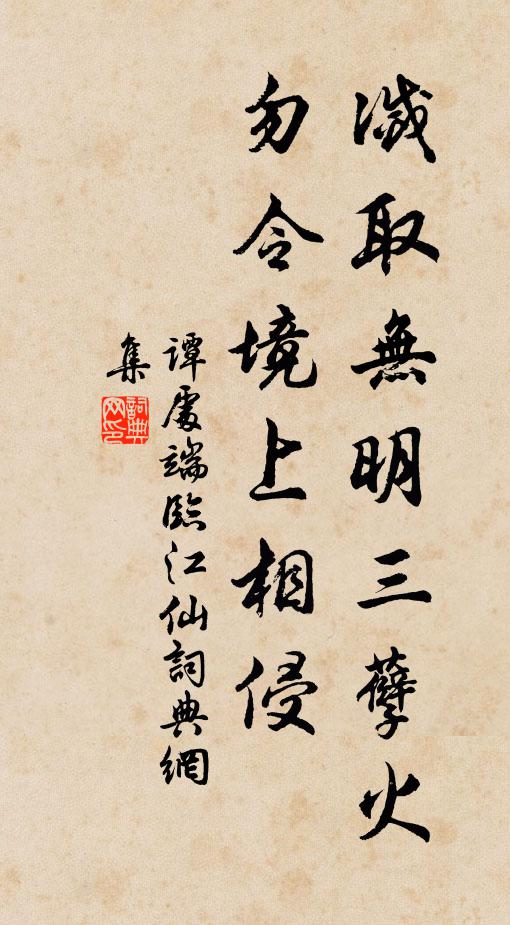 滅取無明三孽火
勿令境上相侵
譚處端臨江仙詞典網
集
詞典网印